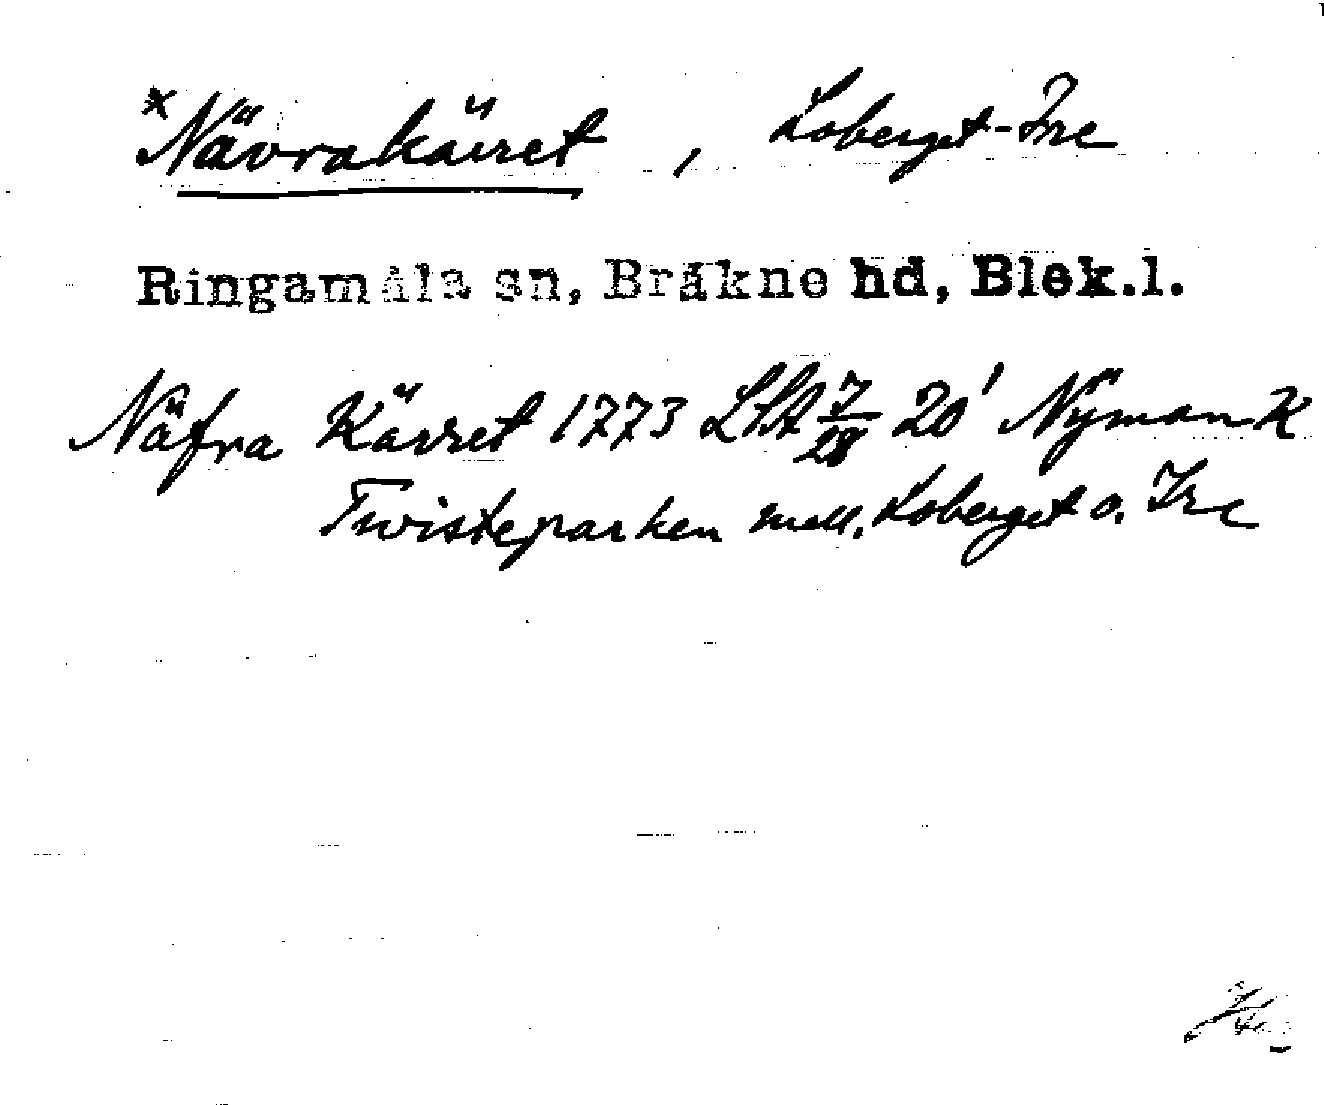 *Nävrakärret, Loberget-Ire
Ringamåla sn, Bräkne hd, Blek.l.
Näfra Kärret 1773 LSA 7/28 20' Nyman K
Twisteparken mell. Loberget o. Ire